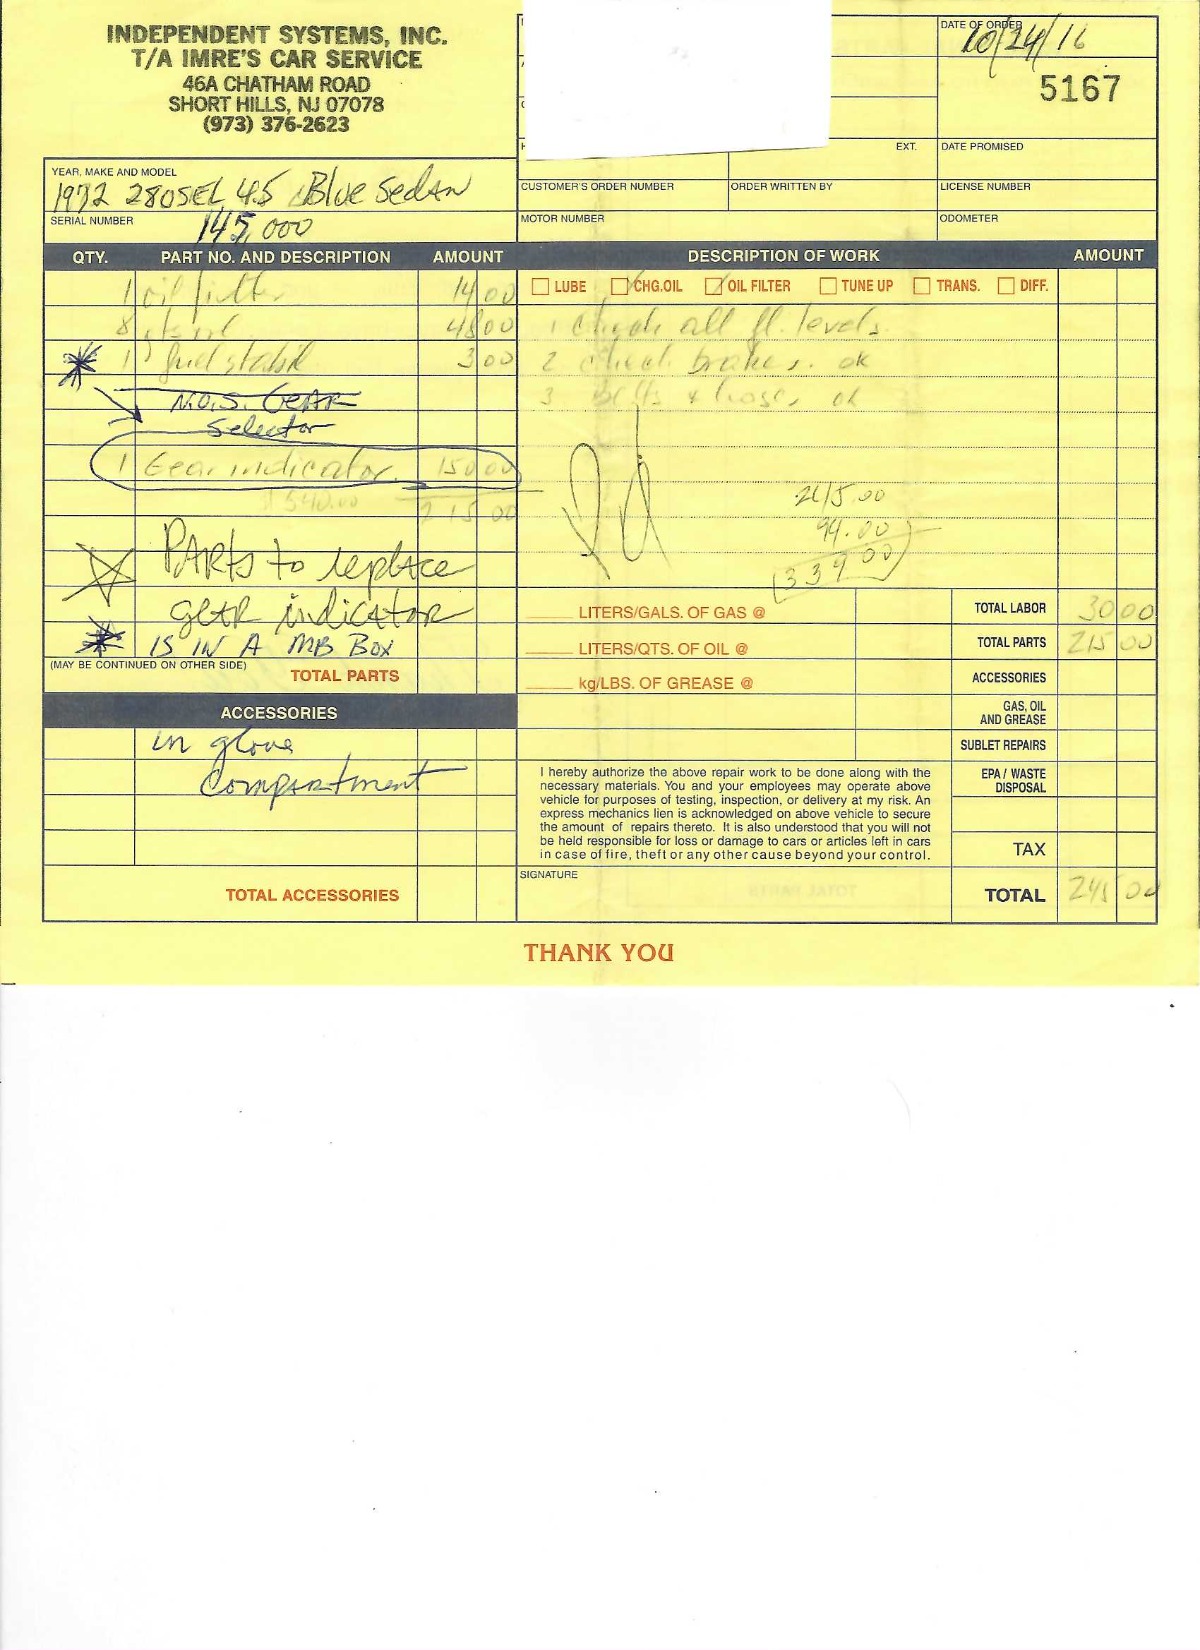 INDEPENDENT SYSTEMS, INC.
T/A IMRE'S CAR SERVICE
46A CHATHAM ROAD
SHORT HILLS, NJ 07078
(973) 376-2623
DATE OF ORDER
10/24/16
5167
EXT.
DATE PROMISED
YEAR, MAKE AND MODEL
1972 280SEL 4.5 Blue Sedan
CUSTOMER'S ORDER NUMBER
ORDER WRITTEN BY
LICENSE NUMBER
SERIAL NUMBER
145,000
MOTOR NUMBER
ODOMETER
QTY. PART NO. AND DESCRIPTION AMOUNT
DESCRIPTION OF WORK AMOUNT
LUBE CHG.OIL OIL FILTER TUNE UP TRANS. DIFF.
1 oil filter 14 00
8 48 00
1 check all fl. levels
1 fuel stabil 3 00
2 check brakes. ok
N.O.S. GEAR
Selector
3 Belts & hoses ok
1 Gear indicator 150 00
$540.00 215 00
Pd
245.00
94.00
339 00
PARTS to replace
gear indicator
IS IN A MB Box
(MAY BE CONTINUED ON OTHER SIDE)
TOTAL PARTS
LITERS/GALS. OF GAS @
LITERS/QTS. OF OIL @
kg/LBS. OF GREASE @
TOTAL LABOR 30 00
TOTAL PARTS 215 00
ACCESSORIES
GAS, OIL
AND GREASE
SUBLET REPAIRS
EPA / WASTE
DISPOSAL
TAX
TOTAL 245 00
ACCESSORIES
in glove
compartment
TOTAL ACCESSORIES
I hereby authorize the above repair work to be done along with the
necessary materials. You and your employees may operate above
vehicle for purposes of testing, inspection, or delivery at my risk. An
express mechanics lien is acknowledged on above vehicle to secure
the amount of repairs thereto. It is also understood that you will not
be held responsible for loss or damage to cars or articles left in cars
in case of fire, theft or any other cause beyond your control.
SIGNATURE
THANK YOU